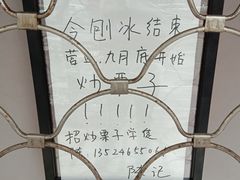 今刨冰结束
营业.九月底开始
炒栗子
！！！！！
招炒栗子学徒
陈记